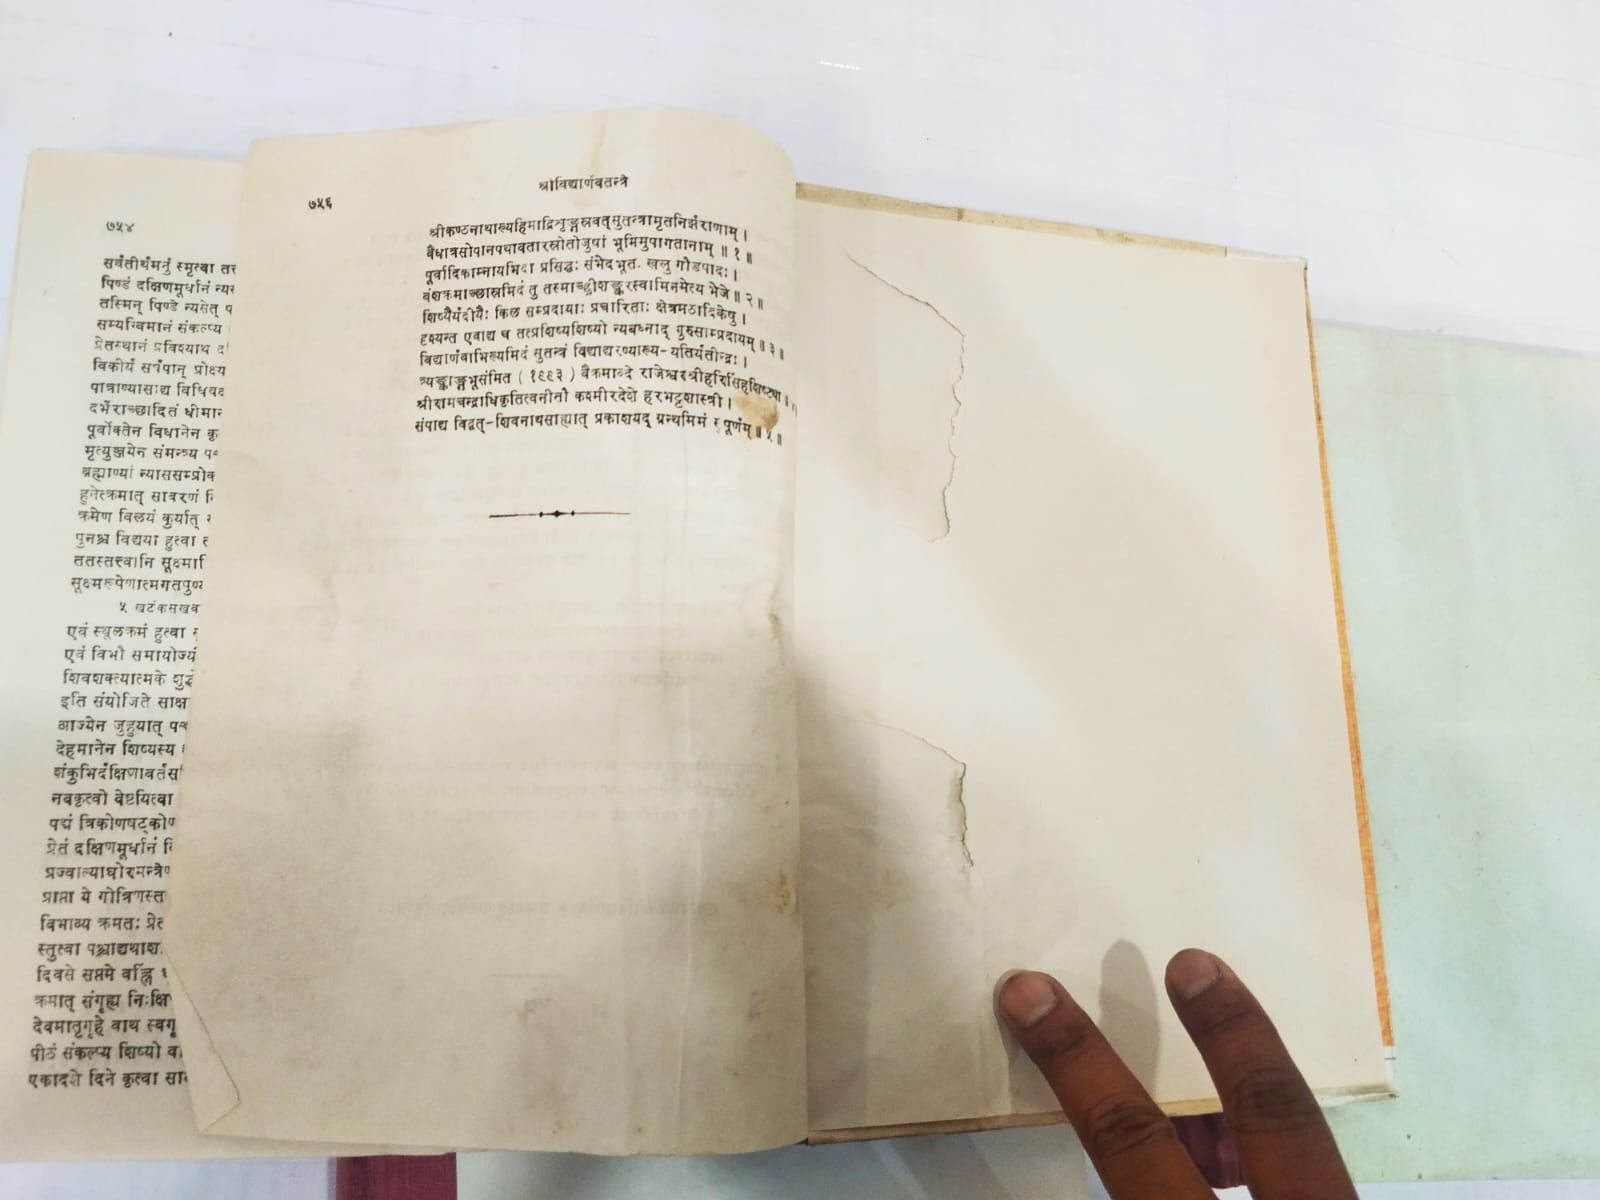 ७५४
सर्वतीर्थमनुं स्मृत्वा
पिण्डं दक्षिणमूर्धानं
तस्मिन् पिण्डे न्यसेत्
सम्यग्विमानं संकल्प्य
प्रेतस्थानं प्रविश्याथ
विकीर्य सर्षपान् प्रोक्ष्य
पात्राण्यासाद्य
दर्भैराच्छादितं
पूर्वोक्तेन विधानेन
मृत्युञ्जयेन संमन्त्र्य
ब्रह्माण्यां
हुनेत्क्रमात् सावरणं
क्रमेण विलयं कुर्यात्
पुनश्च विद्यया हुत्वा
ततस्तत्त्वानि
५
एवं स्थूलक्रमं हुत्वा
एवं विभौ समायोज्यं
शिवशक्त्यात्मके
इति संयोजिते
आज्येन जुहुयात्
देहमानेन शिष्यस्य
नवकृत्वो वेष्टयित्वा
पद्मं
प्रेतं दक्षिणमूर्धानं
प्राप्ता ये
विभाव्य क्रमतः
स्तुत्वा
दिवसे सप्तमे वह्निं
क्रमात् संगृह्य
देवमातृगृहे वाथ
पीठं संकल्प्य शिष्यो
एकादशे दिने कृत्वा
७५६
श्रीविद्यार्णवतन्त्रे
श्रीकण्ठनाथाख्यहिमाद्रिशृङ्गस्रवत्सुतन्त्रामृतनिर्झराणाम् ।
वैधात्रसोपानपथावतारस्रोतोजुषां भूमिमुपागतानाम् ॥ १ ॥
पूर्वादिकाम्नायभिदा प्रसिद्धः संभेदभूतः खलु गौडपादः ।
वंशक्रमाच्छास्त्रमिदं तु तस्माच्छ्रीशङ्करस्वामिनमेत्य भेजे ॥ २ ॥
शिष्यैर्यदीयैः किल सम्प्रदायाः प्रचारिताः क्षेत्रमठादिकेषु ।
दृश्यन्त एवाद्य च तत्प्रशिष्यशिष्यो न्यबध्नाद् गुरुसाम्प्रदायम् ॥ ३ ॥
विद्यार्णवाभिख्यमिदं सुतन्त्रं विद्याद्यरण्याख्य-यतिर्यतीन्द्रः ।
त्र्यङ्काङ्कभूसंमित ( १९९३ ) वैक्रमाब्दे राजेश्वरश्रीहरिसिंहशिष्ट्या ॥
श्रीरामचन्द्राधिकृतित्वनीतौ कश्मीरदेशे हरभट्टशास्त्री ।
संपाद्य विद्वत्-शिवनाथसाह्यात् प्रकाशयद् ग्रन्थमिमं सुपूर्णम् ॥ ५ ॥